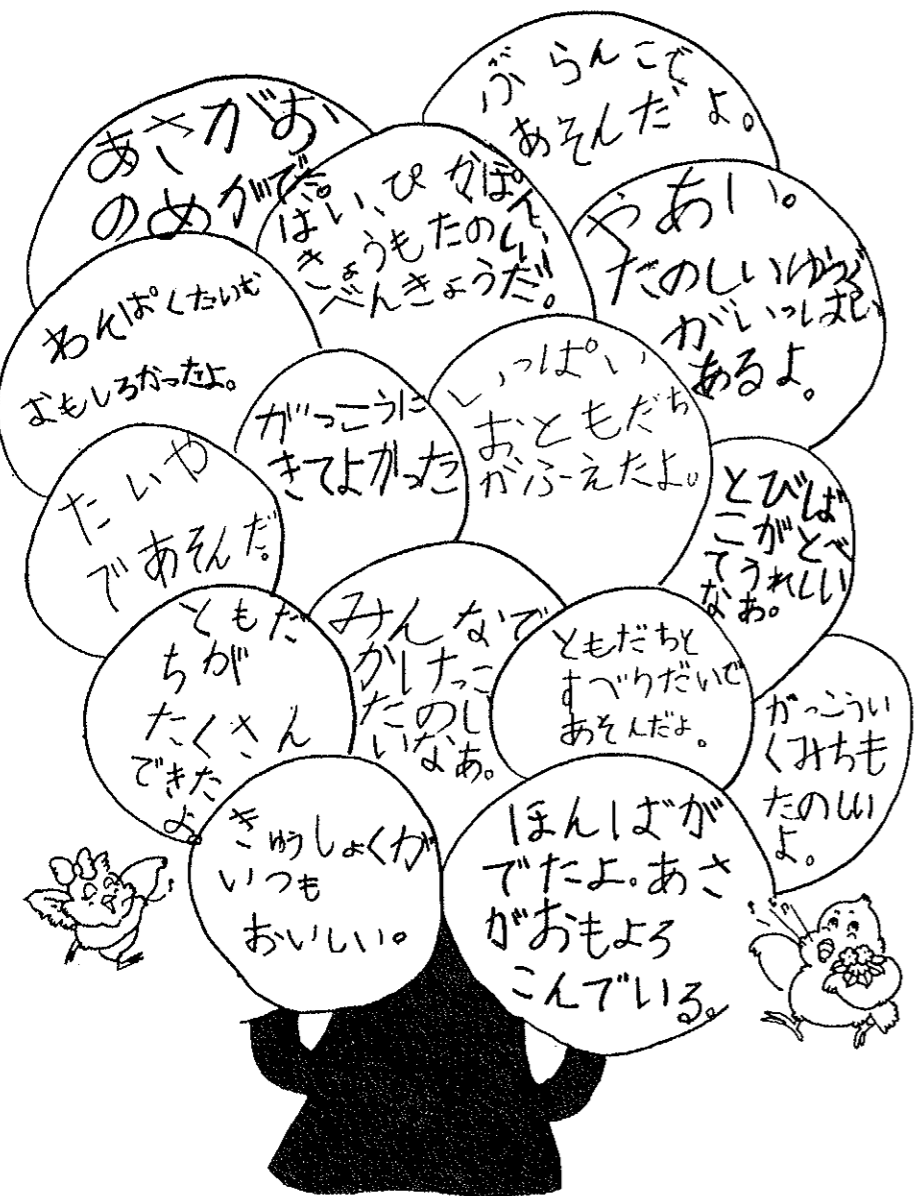 ぶらんこで
あそんだよ。
あさがお
のめがでた。
ぱい、ぴかぽん、
きょうもたのしい
べんきょうだ。
やあい。
たのしいゆうぐ
がいっぱい
あるよ。
わんぱくたいむ
おもしろかったよ。
がっこうに
きてよかった
いっぱい
おともだち
がふーえたよ。
たいや
であそんだ。
とびば
こがとべ
てうれしい
なあ。
ともだ
ちが
たくさん
できた
よ。
みんなで
かけっこ
たのし
いなあ。
ともだちと
すべりだいで
あそんだよ。
がっこうい
くみちも
たのしい
よ。
きゅうしょくが
いつも
おいしい。
ほんばが
でたよ。あさ
がおもよろ
こんでいる。